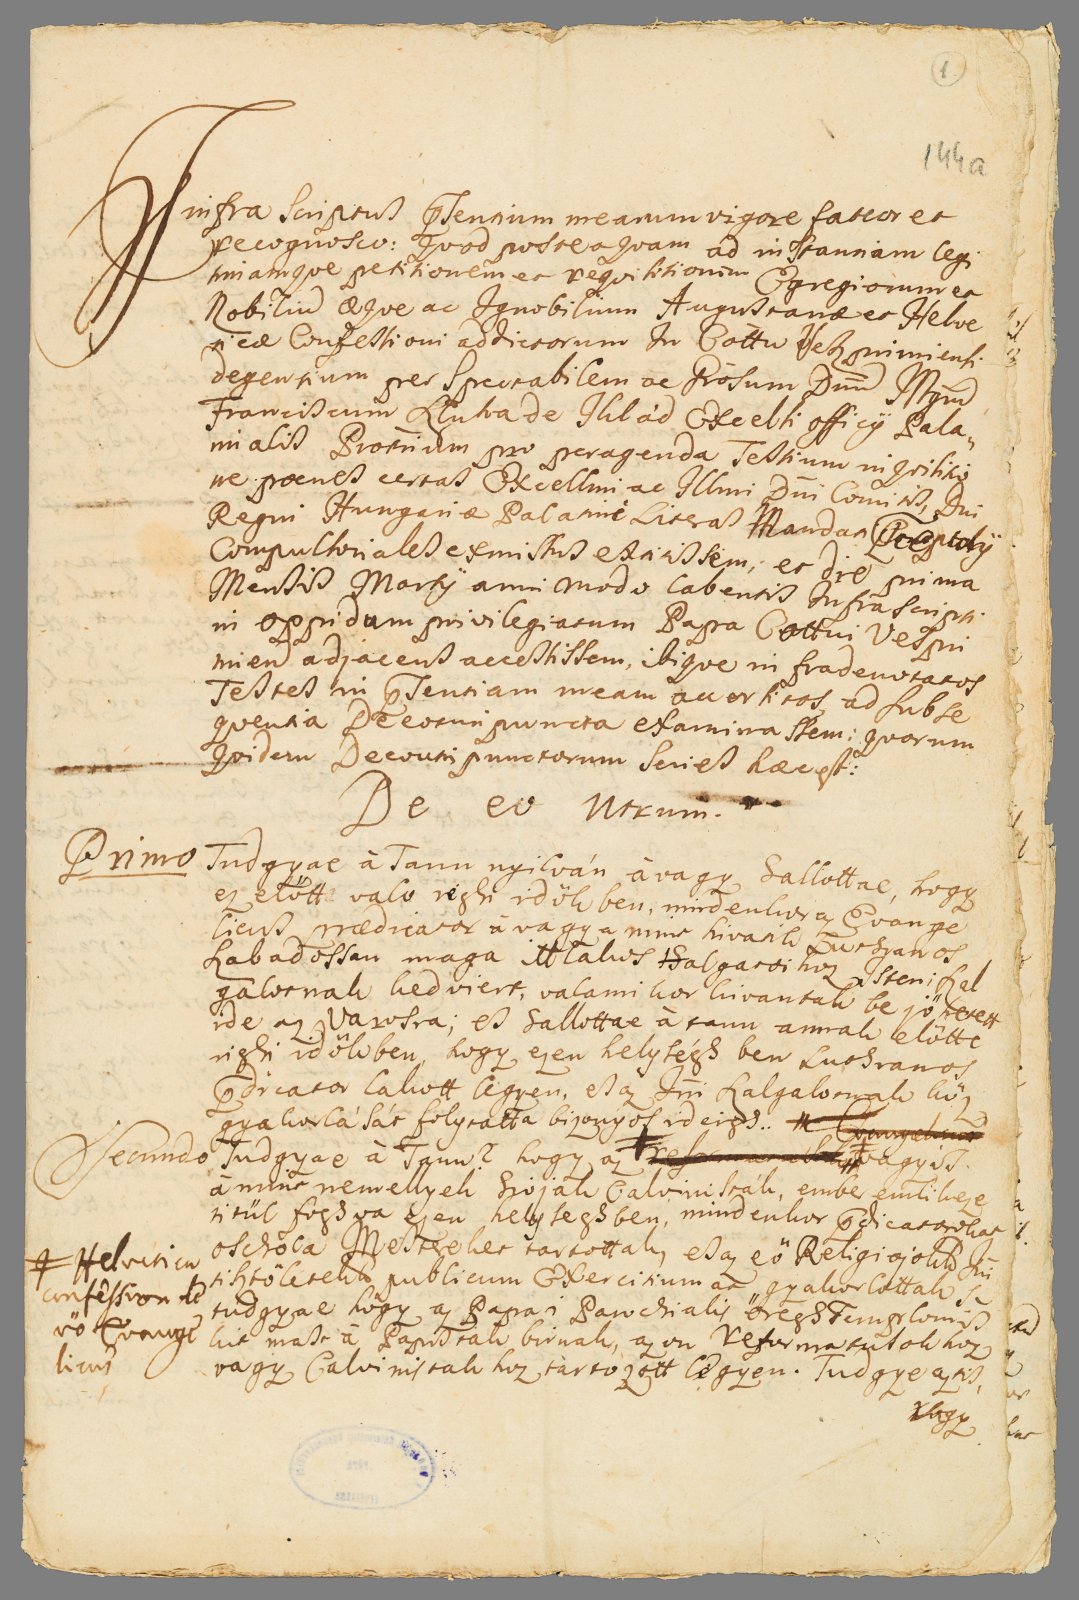 1
144a
Infra Scriptus p̄sentium mearum vigore fateor et
recognosco: Quod posteaquam ad instantiam legi
timamqve petitionem et reqvisitionem Egregiorum et
Nobiliū æqve ac Ignobilium Augustanæ et Helve
ticæ Confessioni addictorum In Cottu Veszprimiensi
degentium per Spectabilem ac Grōsum Dn̄m
Franciscum de Ihlád Excelsi officÿ Pala„
tinalis pro peragenda Testium inqvisitio
ne pœnes certas Excellmi ac Illmi Dn̄i Comitis, Dn̄i
Regni Hungariæ Palatini Literas Mandat Præceptorÿ
Compulsoriales exmissus extitissem, et die prima
Mensis Martÿ anni modo labentis Infrascripti
in oppidum privilegiatum Papa Cottui Veszpri
mien adjacens accessissem, ibique infradenotatos
Testes in p̄sentiam meam accersitos, ad subse
qventia Deeotum puncta examinassem; qvorum
qvidem Deeoutri punctorum Series hæc est:
De eo Utrum.
Primo Tudgyae à Tanu nyilván àvagy hallottae, hogy
ez elött valo righi idökben, mindenkor az Evange
licus prædicator àvagy a mint hivatik Lutheranos
szabadossan maga itt lakos Halgatoihoz Isteni szol
gálotnak kedviért, valamikor kivantak be jöhetett
ide az Varosra; és hallottae à tanu annak elötte
righi idökben, hogy ezen helységh ben Lutheranos
p̄dicator lakott légyen, és az Isteni szolgalotnak
gyakorlását folytatta bizonyos ideigh.
Secundo Tudgyae à Tanu? hogy az # vagyis
à mint nemellyek hijják Calvinisták, ember emlikeze
titül foghva ezen helysegh ben, mindenkor p̄dicatorokat
oschola Mestereket tartottak, és az eö Religiojok
tisztöletek publicum Exercitiumát gyakorlottak
tudgyae hogy az Papai Parochialis öregh Templomis
kit mast à Papisták birnak, azon Reformatusokhoz
vagy Calvinistakhoz tartozott légyen. Tudgye aztis,
vagy
# Helvetica
confession lé
vö Evange
licus